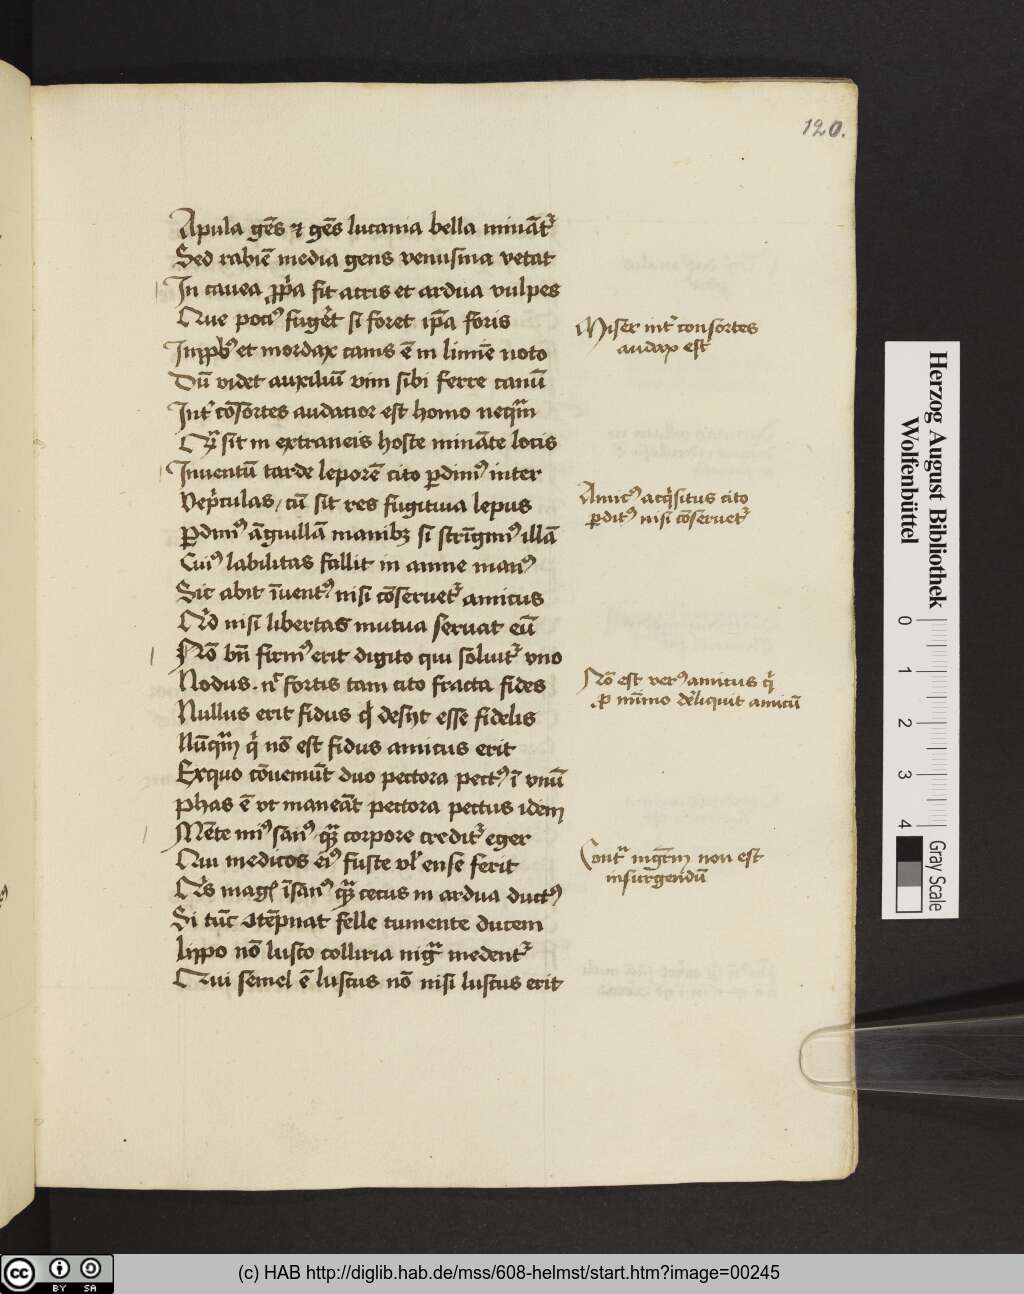 120.
Apula gēs ⁊ gēs lucania bella minātᷣ
Sed rabiē media gens venusina vetat
In cauea ꝓpͥa fit acris et ardua vulpes
Que pociꝰ fugeͤt si foret ip̄a foris
Inpͥbꝰ et mordax canis ē in limīe noto
Dū videt auxiliū vim sibi ferre canū
Intᷣ cōsortes audacior est homo neqͣm
Qͣ sit in extraneis hoste mināte locis
Inuentū tarde leporē cito ꝑdimꝰ inter
Vepͥculas / cū sit res fugitiua lepus
ꝑdimꝰ āguillā manibꝫ si strīgimꝰ illā
Cuiꝰ labilitas fallit in amne manꝰ
Sic abit īuentꝰ nisi cōseruetᷣ amicus
Qͥd nisi libertas mutua seruat eū
Nō bn̄ firmꝰ erit digito qui soluitᷣ vno
Nodus . nͨ fortis tam cito fracta fides
Nullus erit fidus qͥ desijt esse fidelis
Nūqͣm qͥ nō est fidus amicus erit
Exquo cōueniūt duo pectora pectꝰ ī vnū
phas ē vt maneāt pectora pectus idem
Mēte miꝰ sanꝰ qͣꝫ corpore creditᷣ eger
Qui medicos eiꝰ fuste vl̓ ense ferit
Qͥs magꝭ īsanꝰ qͣꝫ cecus in ardua ductꝰ
Si tūc ↄtēpnat felle tumente ducem
Lippo nō lusco colliria nigͣ medentᷣ
Qui semel ē luscus nō nisi luscus erit
Miser intᷣ consortes
audax est
Amicꝰ acqͥsitus cito
ꝑditꝰ nisi cōseruetᷣ
Nō est verꝰ amicus qͥ
ꝓ minimo deliquit amicū
Contͣ ingͣtm non est
insurgendū
Herzog August Bibliothek
Wolfenbüttel
0
1
2
3
4
Gray Scale
cc
BY SA
(c) HAB http://diglib.hab.de/mss/608-helmst/start.htm?image=00245